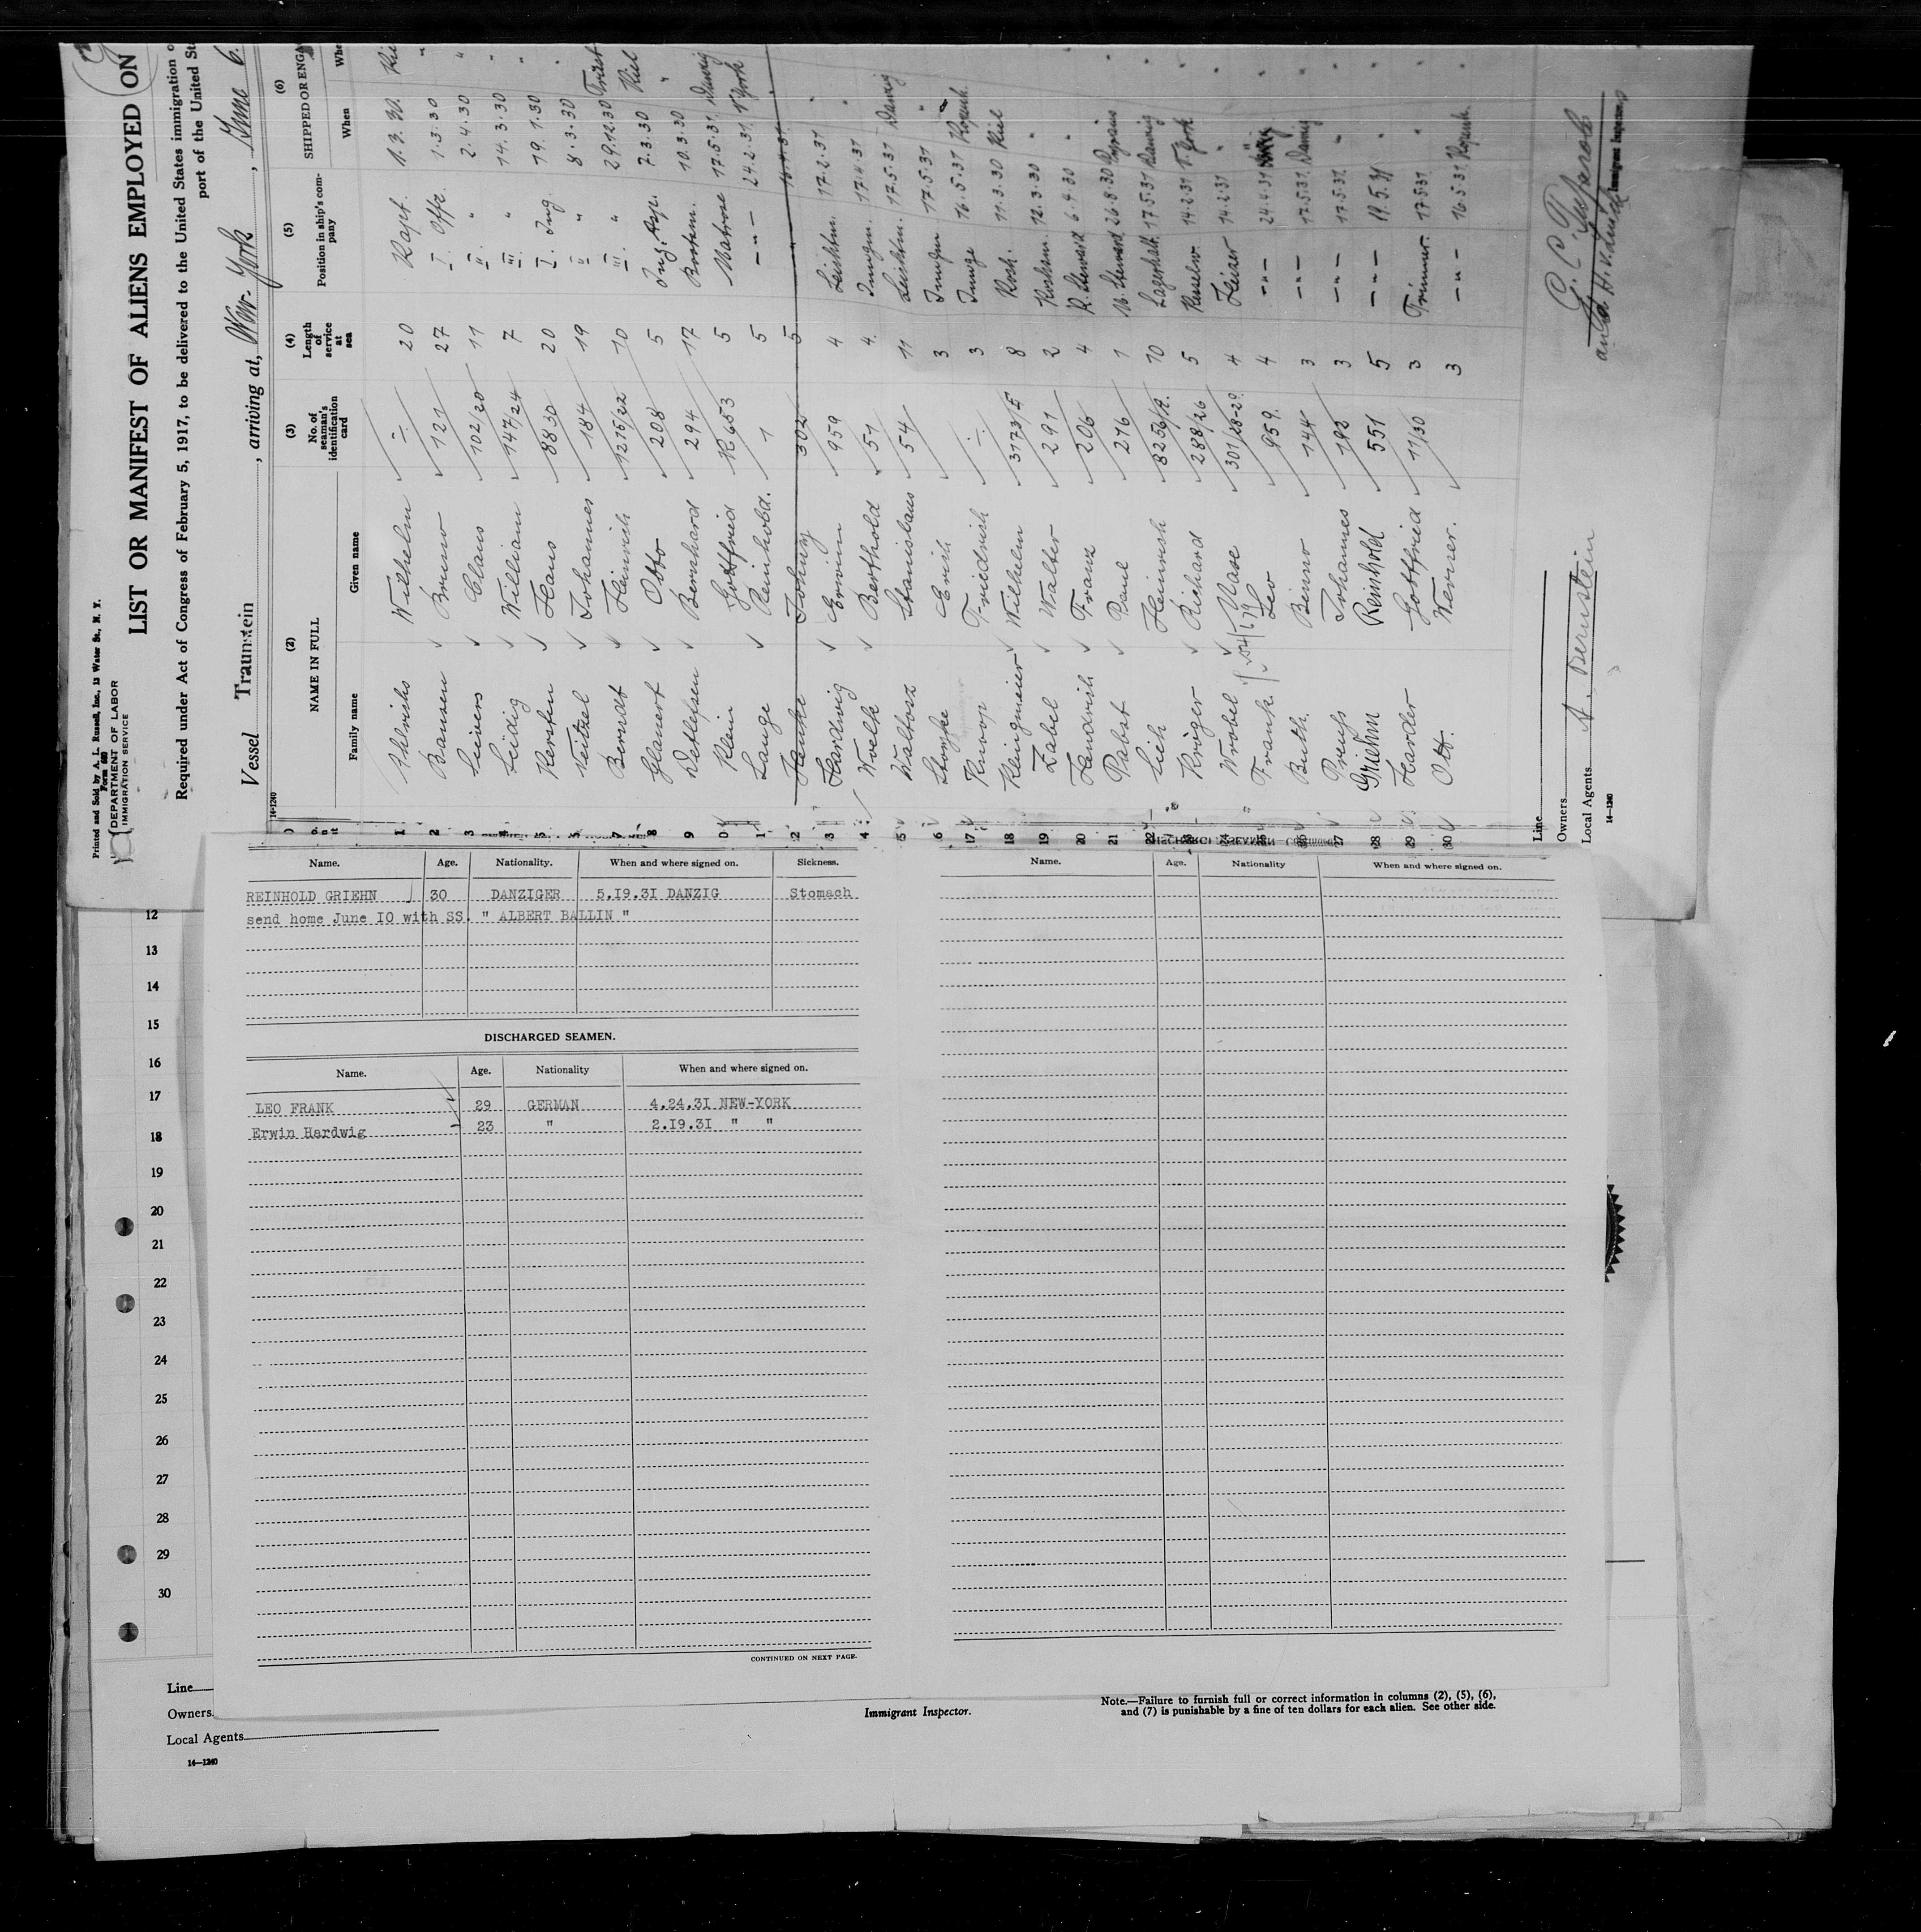 Printed and Sold by A. L. Russell, Inc., 13 Water St., N. Y.
Form 680
DEPARTMENT OF LABOR
IMMIGRATION SERVICE
LIST OR MANIFEST OF ALIENS EMPLOYED ON
Required under Act of Congress of February 5, 1917, to be delivered to the United States immigration
port of the United St
Vessel Traunstein, arriving at, New-York, June 6.
14-1240
(2) (3) (4) (5) (6)
NAME IN FULL No. of seaman's identification card Length of service at sea Position in ship's company SHIPPED OR ENGA
Family name Given name When Whe
1 Ahlrichs Wilhelm -/- 20 Kapt. 1.3.30. Ki
2 Bansen Bruno 121 27 I. Offz. 1.3.30 "
3 Sievers Claus 102/20 11 II. " 2.4.30 "
4 Leidig William 147/24 7 III. " 14.3.30 "
5 Kersten Hans 8830 20 I. Ing. 19.1.30 "
Neitzel Johannes 184 19 II. " 8.3.30 "
7 Berndt Heinrich 1215/22 10 III. " 29.12.30 Triest
8 Glanert Otto 208 5 Ing. Asp. 7.3.30 Kiel
9 Detlefsen Bernhard 294 17 Bootsm. 10.3.30 "
0 Klein Gottfried K653 5 Matrose 17.5.31 Danzig
1 Lange Reinhold. 1 5 -"- 24.2.31 N York
2 Henke Johnny 302 5
3 Hardwig Erwin 959 4 Leichtm. 17.2.31 "
4 Woelk Berthold 51 4. Jungm. 17.4.31 "
5 Waltosz Stanislaus 54 11 Leichtm. 17.5.31 Danzig
6 Erich 3 Jungm 17.5.31 "
17 Knoop Friedrich -/- 3 Junge 16.5.31 Kopenh.
18 Kleingmeier Wilhelm 3173/E 8 Koch. 11.3.30 Kiel
19 Zabel Walter 291 2 Kochsm. 12.3.30 "
20 Hendrich Franz 206 4 K. Steward 6.4.30 "
21 Pabst Paul 216 1 M. Steward 26.8.30
22 Lich Heinrich 8256/R. 10 Lagerhalt. 17.5.31 Danzig
Kröger Richard 288/26 5 Kesselw. 14.2.31 N. York
Wrobel Vase 301/28-29 4 Heizer 14.2.31 "
Frank Leo 959. 4 -"- 24.4.31 "
Buth. Benno 144 3 -"- 17.5.31. Danzig
27 Preuss Johannes 192 3 -"- 17.5.31. "
28 Griehn Reinhold 551 5 -"- 19.5.31 "
29 Harder Gottfried 11/30 3 Trimmer. 17.5.31 "
30 Ott. Werner. 3 -"- 16.5.31 Kopenh.
Line
Owners
Local Agents A. Bernstein
14-1240
Immigrant Inspector
Name. Age. Nationality. When and where signed on. Sickness.
REINHOLD GRIEHN 30 DANZIGER 5.I9.3I DANZIG Stomach
send home June IO with SS. " ALBERT BALLIN "
DISCHARGED SEAMEN.
Name. Age. Nationality When and where signed on.
LEO FRANK 29 GERMAN 4.24.3I NEW-YORK
Erwin Hardwig 23 " 2.I9.3I " "
CONTINUED ON NEXT PAGE.
Name. Age. Nationality When and where signed on.
12
13
14
15
16
17
18
19
20
21
22
23
24
25
26
27
28
29
30
Line
Owners
Local Agents
14-1240
Immigrant Inspector.
Note.—Failure to furnish full or correct information in columns (2), (5), (6),
and (7) is punishable by a fine of ten dollars for each alien. See other side.